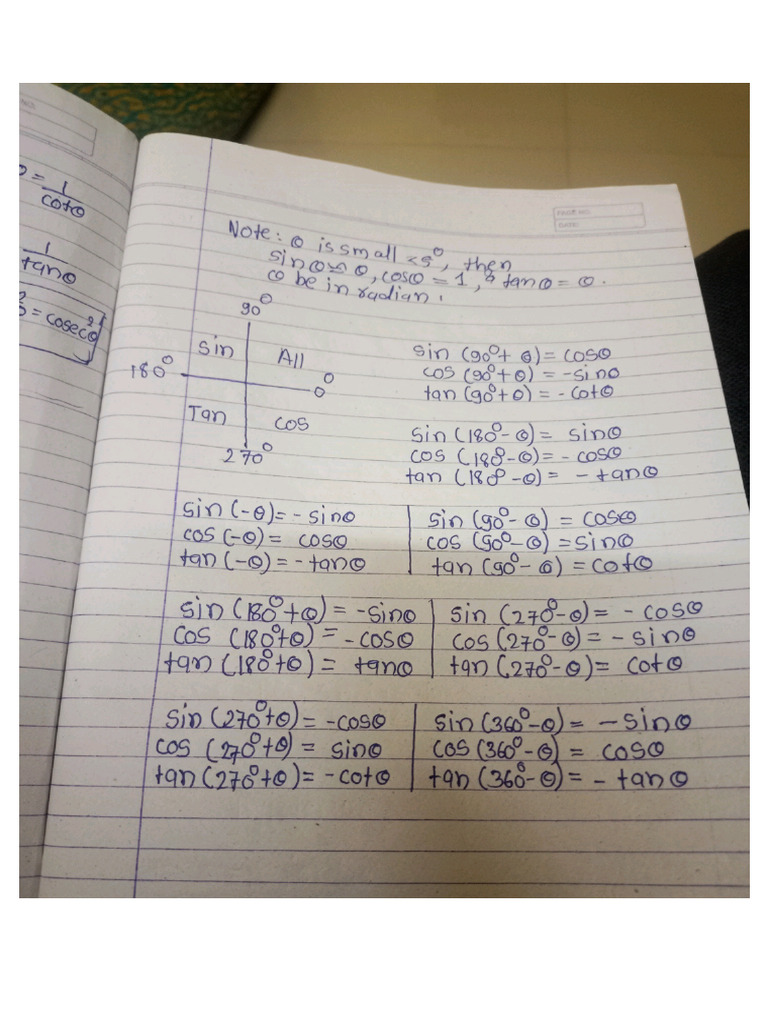 θ = 1/cotθ
1/tanθ
θ = cosec²θ
PAGE NO.
DATE:
Note: θ is small <5°, then
sinθ ≈ θ, cosθ = 1, & tanθ = θ.
θ be in radian.
90°
Sin All
180° 0°
Tan cos
270°
sin (90°+ θ) = cosθ
cos (90°+θ) = -sinθ
tan (90°+θ) = -cotθ
sin (180°-θ) = sinθ
cos (180°-θ) = - cosθ
tan (180°-θ) = - tanθ
sin (-θ) = - sinθ
cos (-θ) = cosθ
tan (-θ) = - tanθ
sin (90°- θ) = cosθ
cos (90°- θ) = sinθ
tan (90°- θ) = cotθ
sin (180°+θ) = -sinθ
cos (180°+θ) = -cosθ
tan (180°+θ) = tanθ
sin (270°-θ) = - cosθ
cos (270°-θ) = - sinθ
tan (270°-θ) = cotθ
sin (270°+θ) = -cosθ
cos (270°+θ) = sinθ
tan (270°+θ) = -cotθ
sin (360°-θ) = - sinθ
cos (360°-θ) = cosθ
tan (360°-θ) = - tanθ